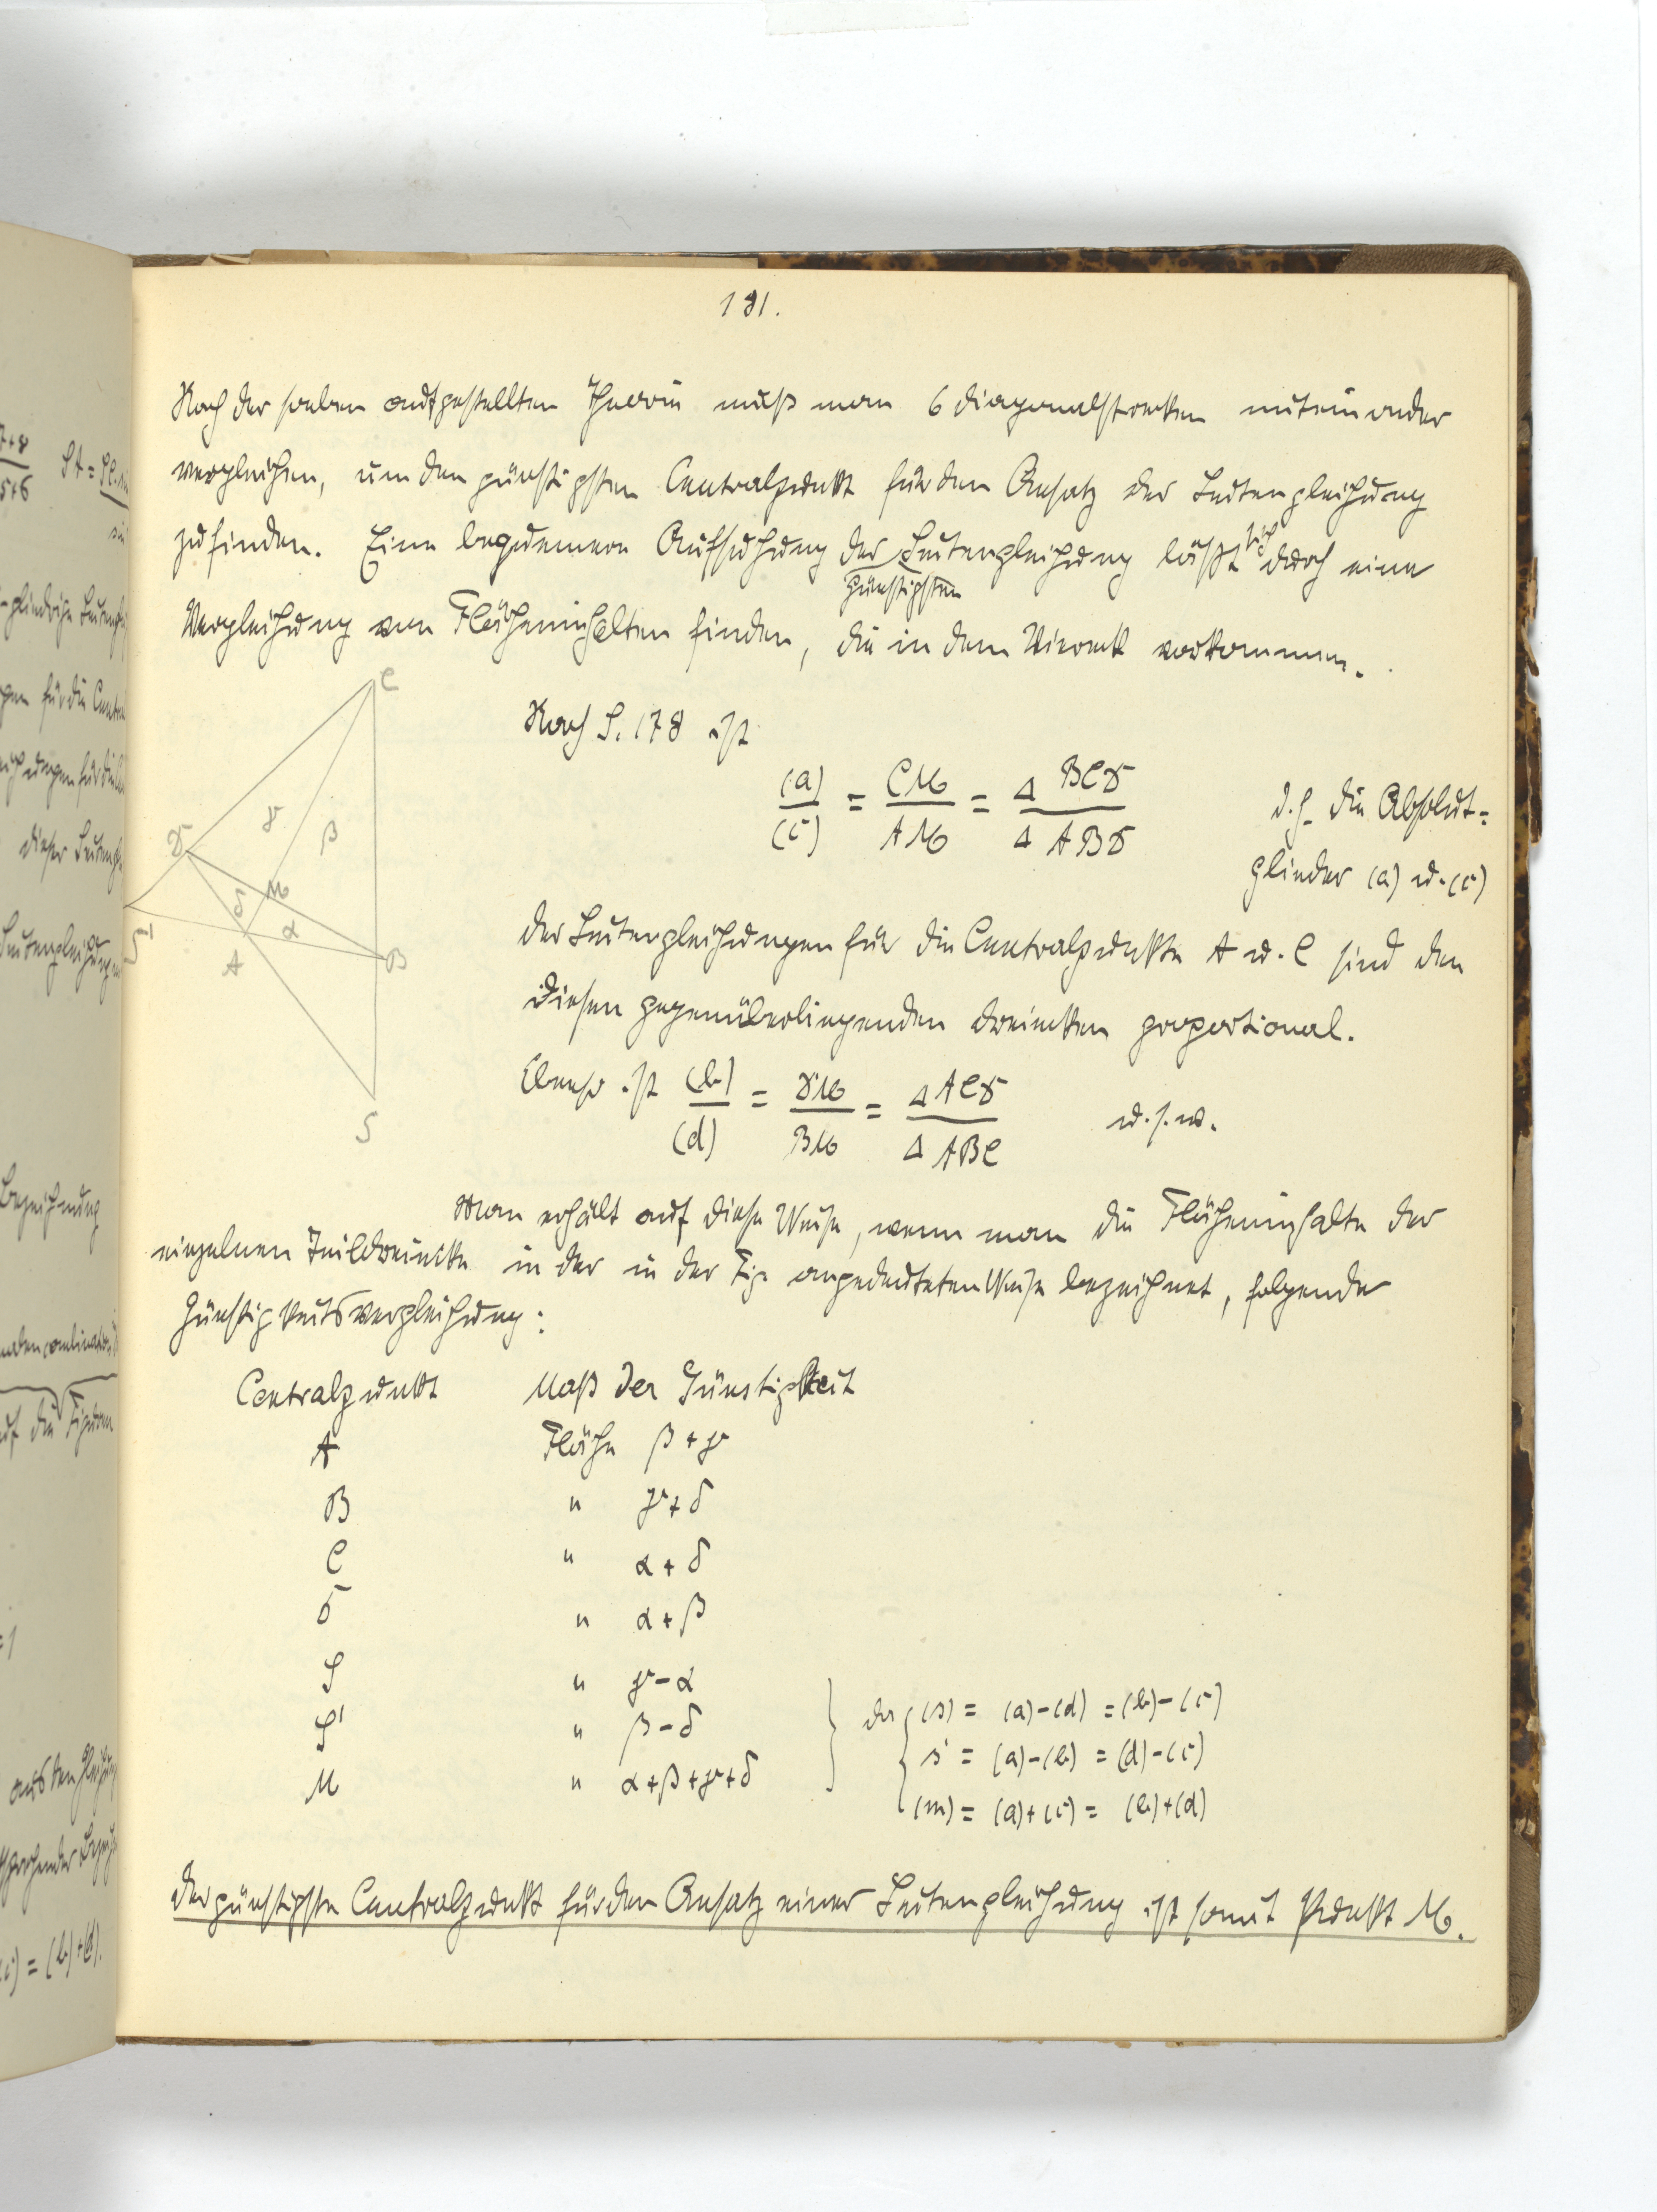 181.
Nach der soeben aufgestellten Theorie muß man 6 Diagonalstrecken miteinander
vergleichen, um den günstigsten Centralpunkt für den Ansatz der Seitengleichung
zu finden. Eine bequemere Aufsuchung der Seitengleichung läßt sich durch eine
günstigsten
Vergleichung von Flächeninhalten finden, die in dem Viereck vorkommen.
C
γ
β
D
M
δ
α
S'
A
B
S
Nach S. 178 ist
(a)/(c) = CM/AM = Δ BCD/Δ ABD d.h. die Absolut-
glieder (a) u. (c)
der Seitengleichungen für die Centralpunkte A u. C sind den
diesen gegenüberliegenden Dreiecken proportional.
Ebenso ist (b)/(d) = DM/BM = Δ ACD/Δ ABC u.s.w.
Man erhält auf diese Weise, wenn man die Flächeninhalte der
einzelnen Teildreiecke in der in der Fig. angedeuteten Weise bezeichnet, folgende
Günstigkeitsvergleichung:
Centralpunkt Maß der Günstigkeit
A Fläche β + γ
B " γ + δ
C " α + δ
D " α + β
S " γ - α
S' " β - δ
M " α + β + γ + δ
da (s) = (a) - (d) = (b) - (c)
s' = (a) - (b) = (d) - (c)
(m) = (a) + (c) = (b) + (d)
Der günstigste Centralpunkt für den Ansatz einer Seitengleichung ist somit Punkt M.